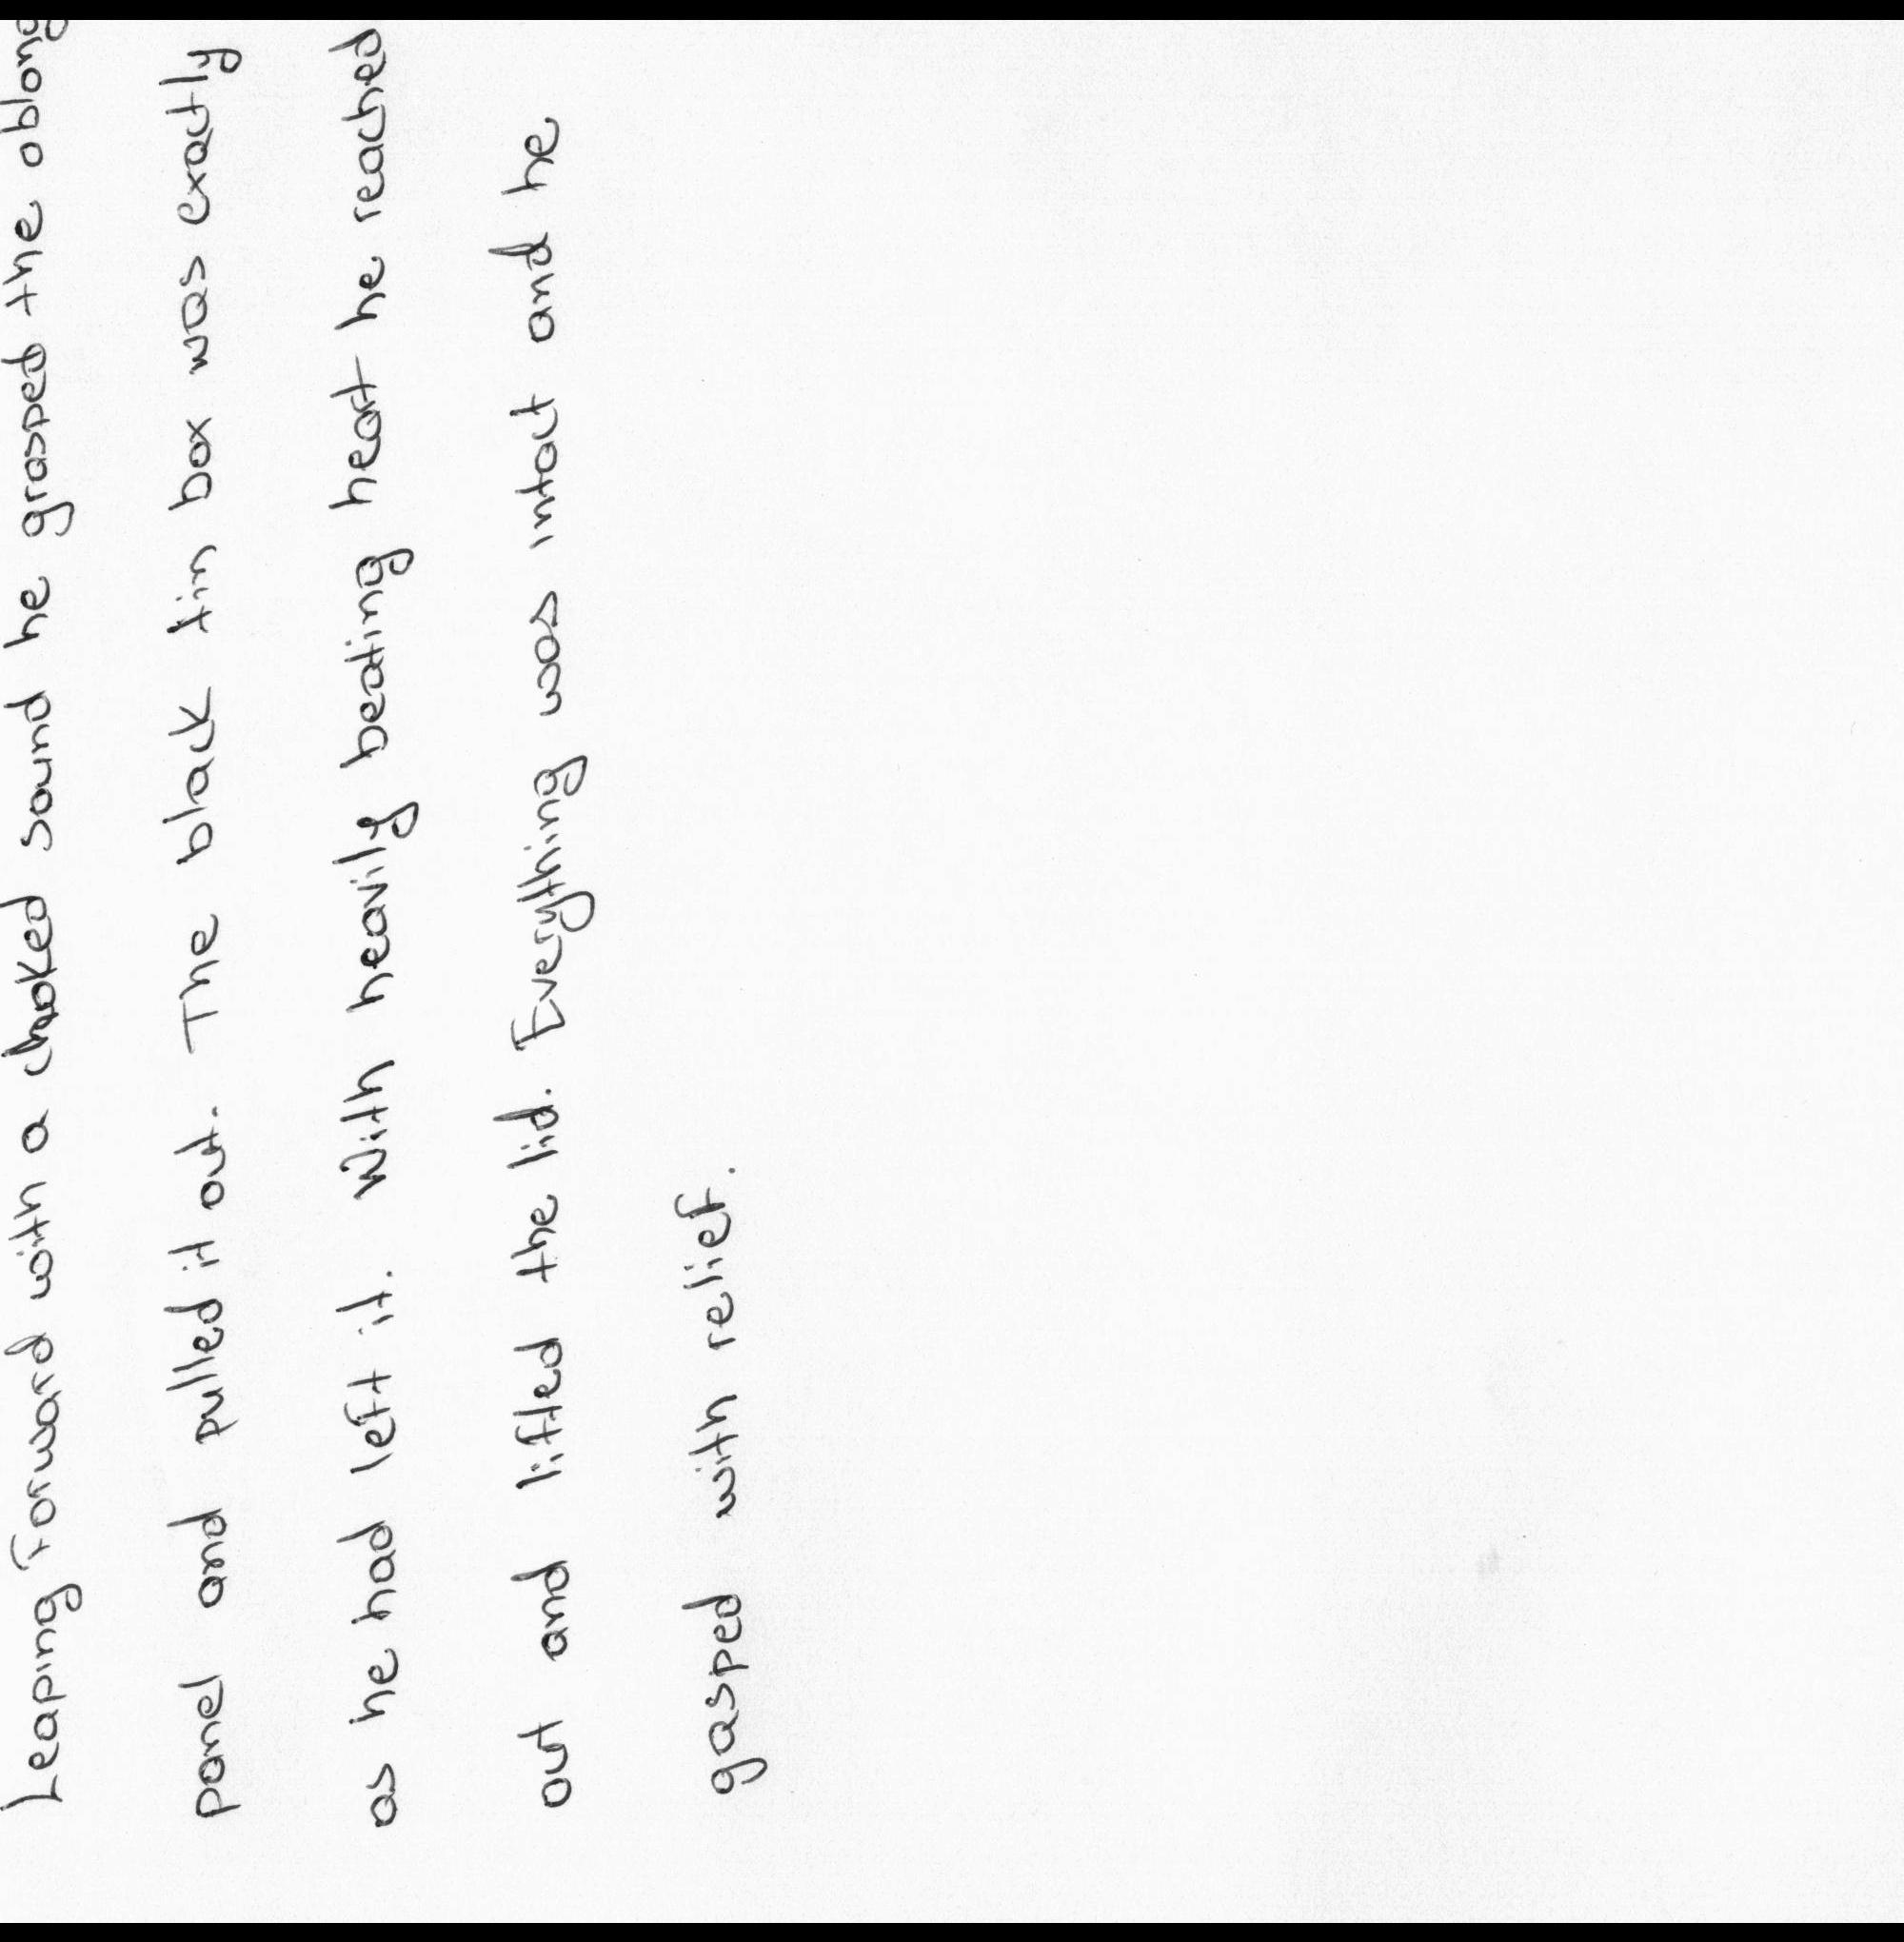 Leaping forward with a choked sound he grasped the oblong
panel and pulled it out. The black tin box was exactly
as he had left it. With heavily beating heart he reached
out and lifted the lid. Everything was intact and he
gasped with relief.